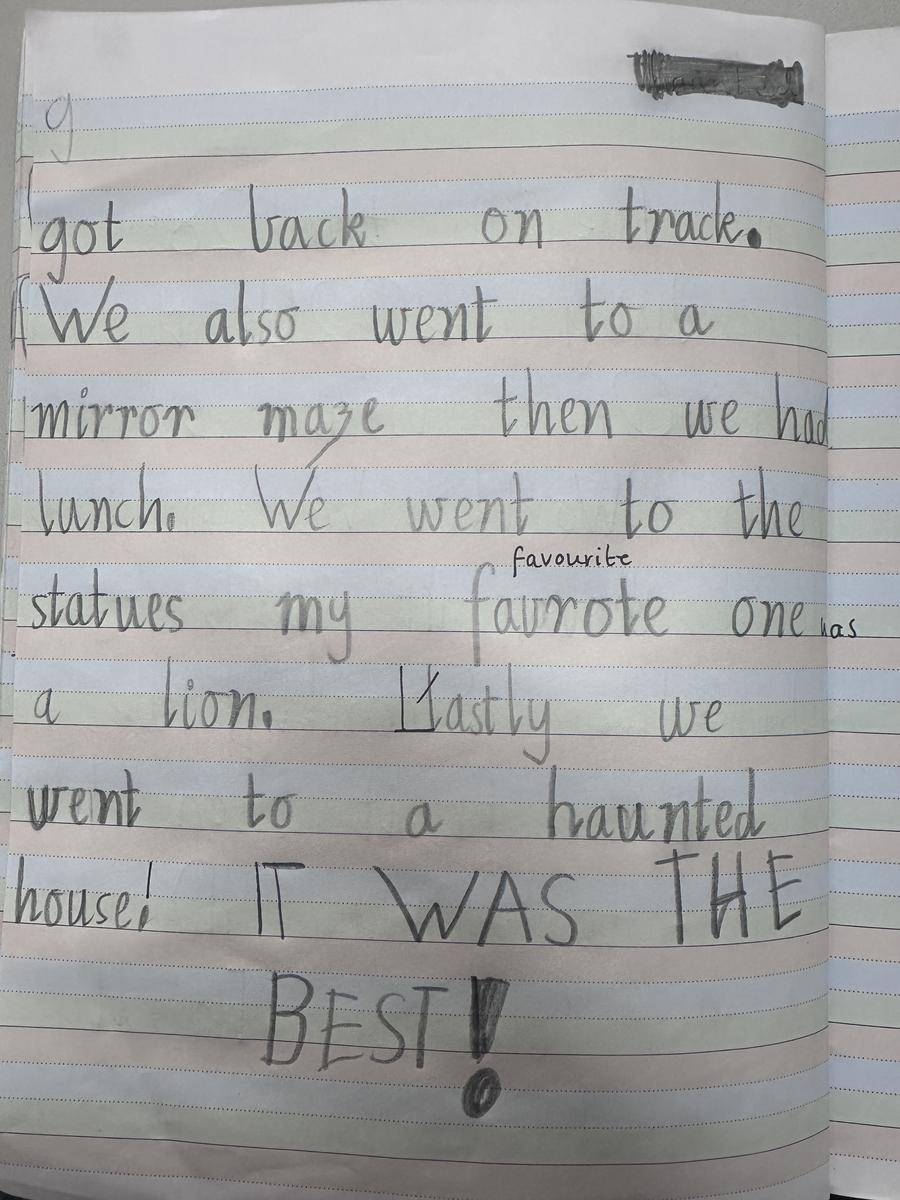 g
got back on track.
We also went to a
mirror maze then we had
lunch. We went to the
favourite
statues my favrote one was
a lion. Lastly we
went to a haunted
house! IT WAS THE
BEST!